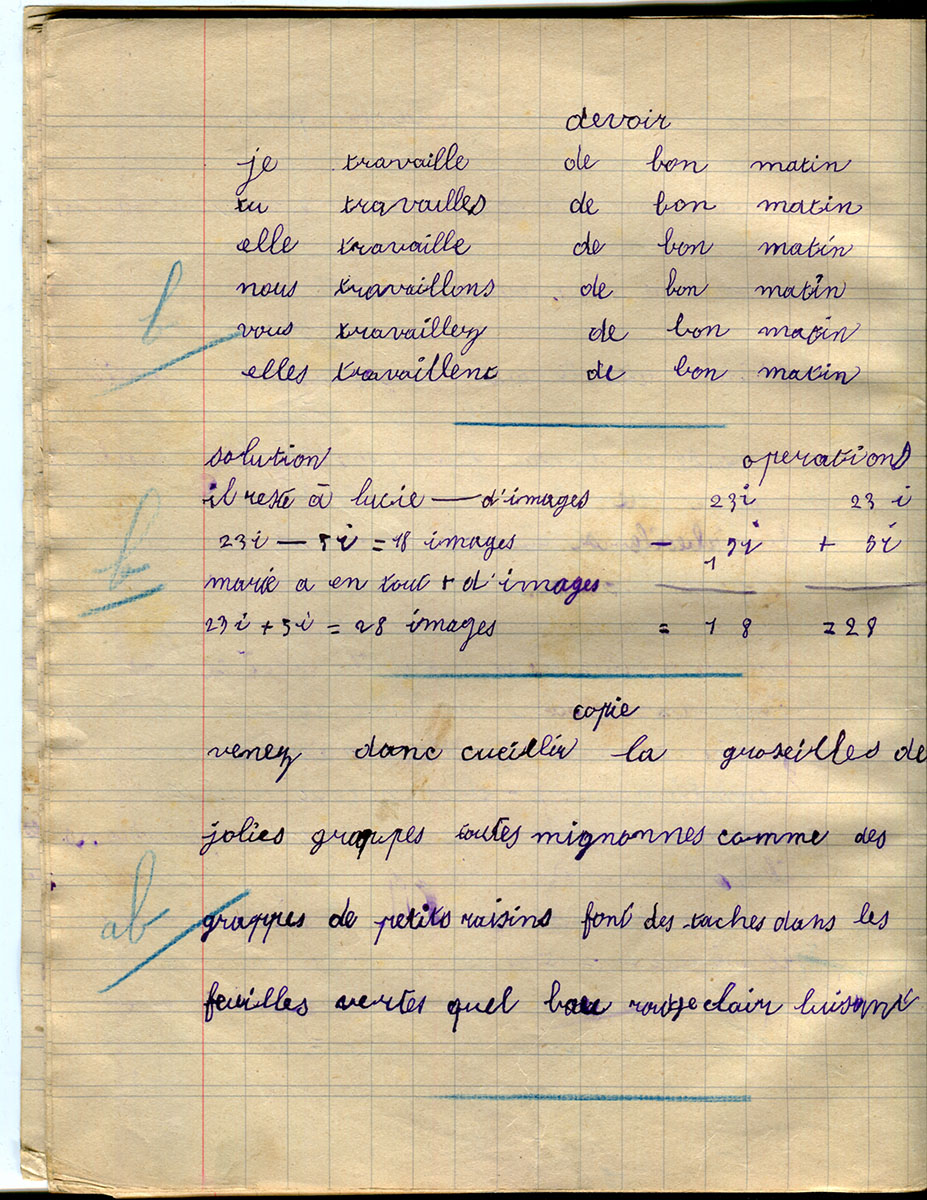 devoir
je travaille de bon matin
tu travailles de bon matin
elle travaille de bon matin
nous travaillons de bon matin
b
vous travaillez de bon matin
elles travaillent de bon matin
solution operations
il reste à lucie — d'images 23i 23 i
23i — 5i = 18 images — 5i + 5i
b
marie a en tout + d'images 1
23i + 5i = 28 images = 18 = 28
copie
venez donc cueillir la groseilles de
jolies grappes toutes mignonnes comme des
ab
grappes de petits raisins font des taches dans les
feuilles vertes quel bau rouge clair luisant